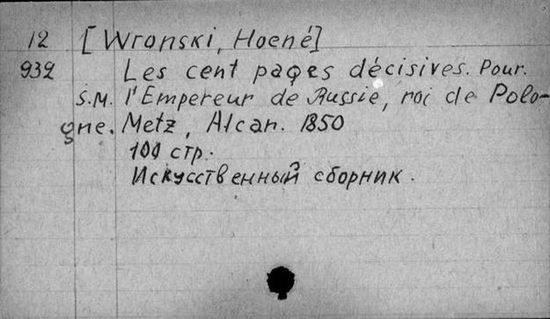 12 [Wronski, Hoené]
932 Les cent pages décisives. Pour.
S.M. l'Empereur de Russie, roi de Polo-
gne. Metz, Alcan. 1850
100 стр.
Искусственный сборник.